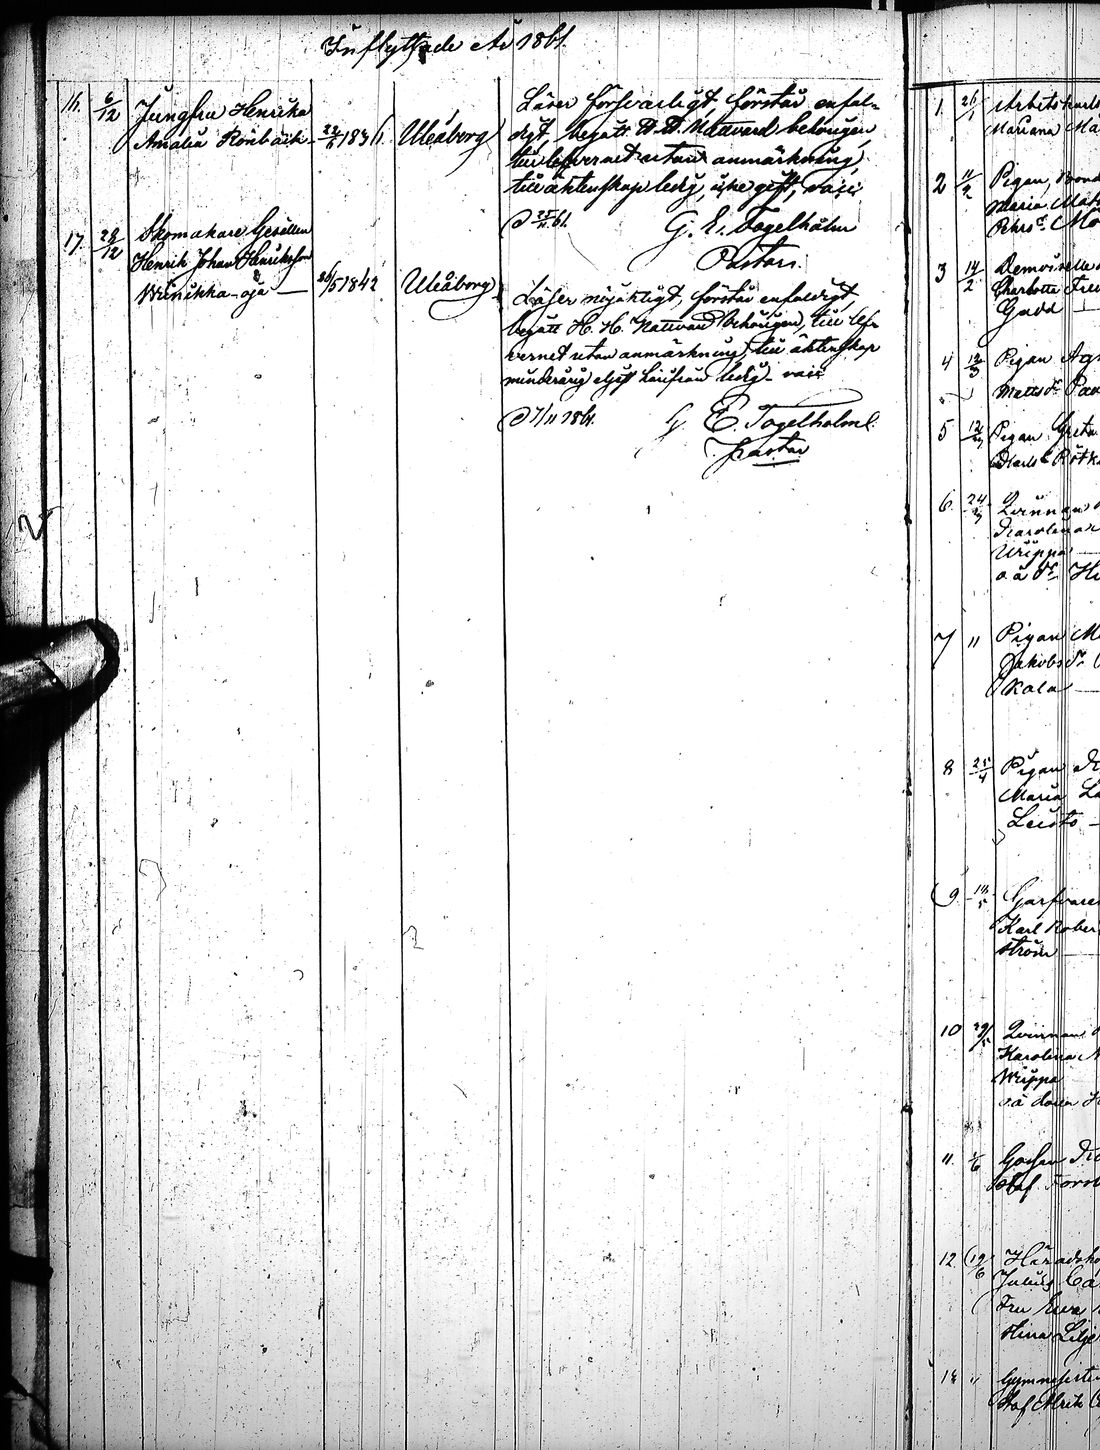 Inflyttade År 1861.
16. 6/12 Jungfru Henrika
Amalia Rönbäck 22/6 183 Uleåborg
Läser försvarligt förstår enfal-
digt, begått H. H. Nattvard behörigen,
till lefvernet utan anmärkning,
till äktenskap ledig, icke gift, vacc.
D 25/11 61. G. E. Fogelholm
Pastor.
17. 28/12 Skomakare Gesällen
Henrik Johan Henriksson
Wiinikka-oja 1842 Uleåborg
Läser nöjaktigt, förstår enfaldigt
begått H. H. Nattvard behörigen, till lef-
vernet utan anmärkning, till äktenskap
minderårig ledig vacc
D 7/11 1861. G. E. Fogelholm
Pastor
2
1. 26/1
Mariana
2 Pigan,
Maria Mats
3 14/2 Demoiselle
Charlotta
Gadd
4 12/3 Pigan
Matts dr
5 12/3 Pigan Greta
Karls
6. 24/3 Qvinnan
Karolina
Wrippa
o ä dr
7 " Pigan
Jakobs dr
Kala
8 25/4 Pigan
Maria
Leisto
9 Garfvare
Karl Rober
ström
10 Qvinnan
Karolina
Wrippa
oä
11. Gossen
12 12/6 Häradshö
Julius
Fru Eva
Stina Lilje
13 " Gymnasisten